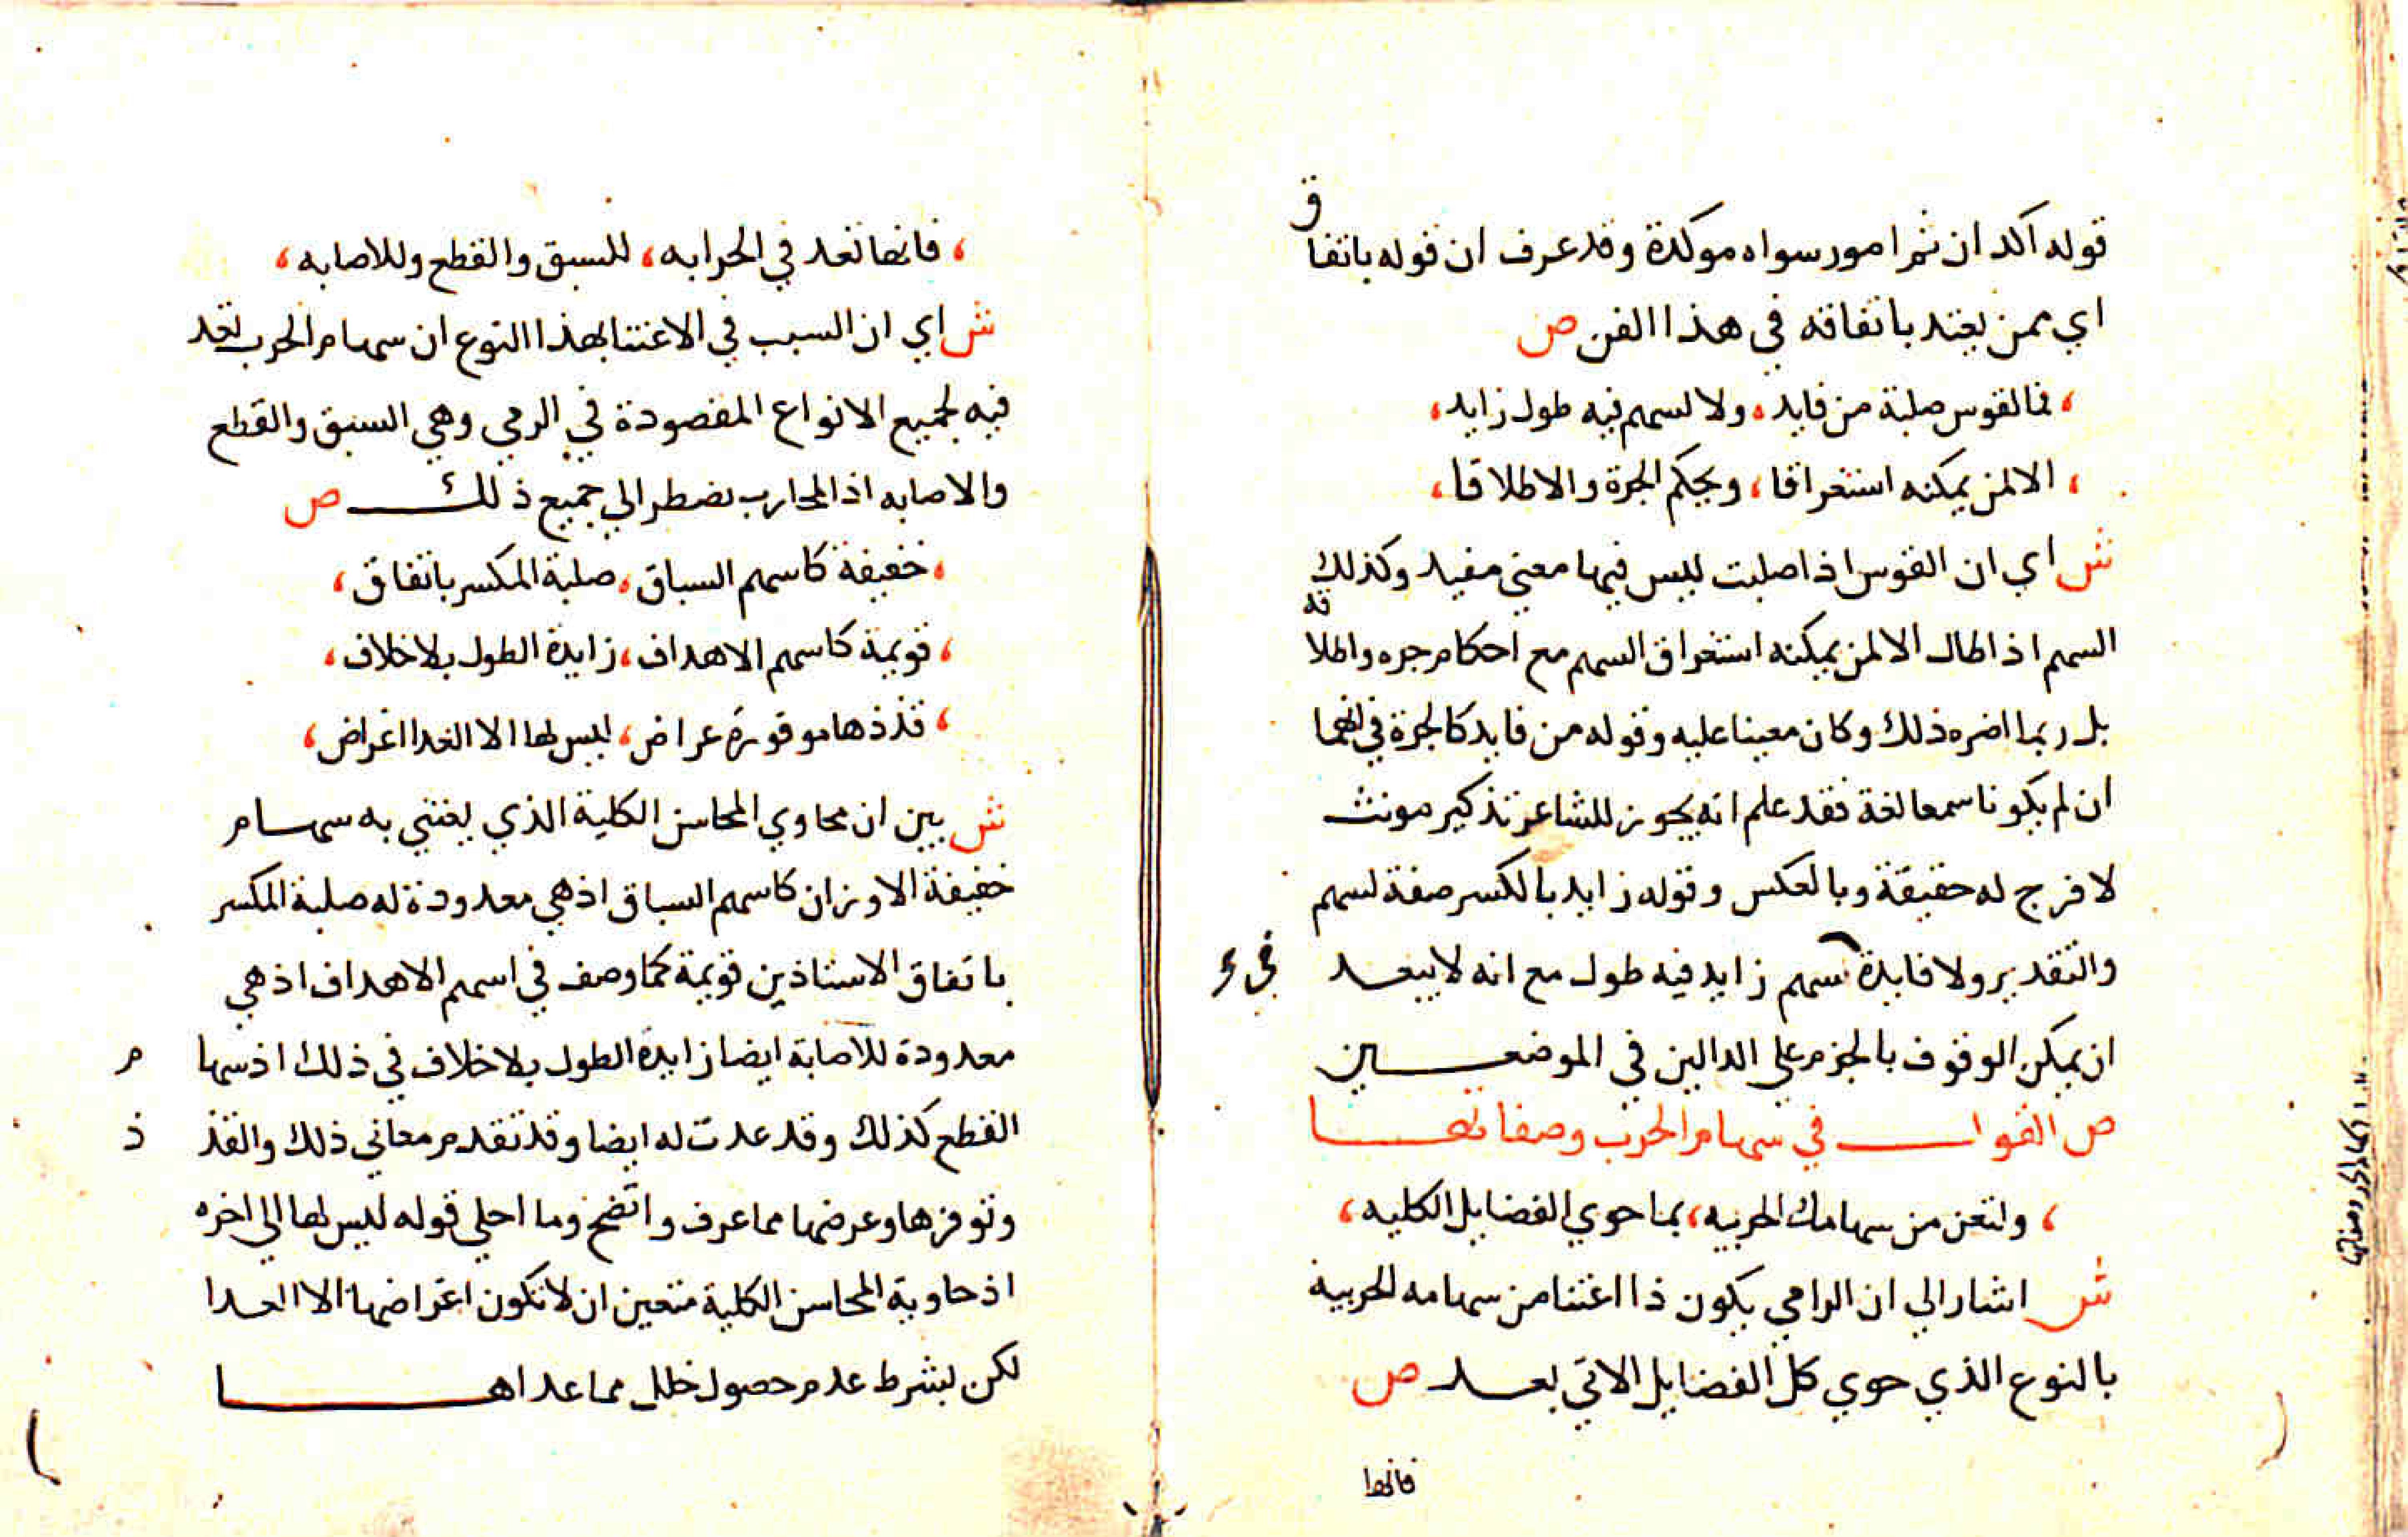 قوله اكد ان ثم امور سواه موكدة وقد عرف ان قوله باتفاق
اي ممن يعتد باتفاقه في هذا الفن ص
، فما لقوس صلبة من فايد ، ولا لسهم فيه طول زايد ،
، الا لمن يمكنه استغراقا ، ويحكم الجرة والاطلاقا ،
ش اي ان القوس اذا صلبت ليس فيها معني مفيد وكذلك
السهم اذا طال الا لمن يمكنه استغراق السهم مع احكام جره واطلاقه
بل ربما اضره ذلك وكان معينا عليه وقوله من فايد كالجرة في انهما
ان لم يكونا سمعا لغة فقد علم انه يجوز للشاعر تذكير مونث
لا فرج له حقيقة وبالعكس وقوله زايد بالكسر صفة لسهم
والتقدير ولا فايدة سهم زايد فيه طول مع انه لا يبعد
في
ان يمكن الوقوف بالجزم علي الدالين في الموضعين
ص القول في سهام الحرب وصفاتها
، ولتغن من سهامك الحربيه ، بما حوي الفضايل الكليه ،
ش اشار الي ان الرامي يكون ذا اغتنا من سهامه الحربية
بالنوع الذي حوي كل الفضايل الاتي بعد ص
فانها
، فانها تعد في الحرابه ، للسبق والقطع وللاصابه ،
ش اي ان السبب في الاغتنا بهذا النوع ان سهام الحرب تعد
فيه لجميع الانواع المقصودة في الرمي وهي السبق والقطع
والاصابه اذ المحارب يضطر الي جميع ذلك ص
، خفيفة كاسهم السباق ، صلبة المكسر باتفاق ،
، قويمة كاسهم الاهداف ، زايدة الطول بلا خلاف ،
، قذذها موفورة عراض ، ليس لها الا العدا اغراض ،
ش بين ان محاوي المحاسن الكلية الذي يغتني به سهام
خفيفة الاوزان كاسهم السباق اذ هي معدودة له صلبة المكسر
باتفاق الاستاذين قويمة كما وصف في اسهم الاهداف اذ هي
معدودة للاصابة ايضا زايدة الطول بلا خلاف في ذلك اذ سها م
القطع كذلك وقد عدت له ايضا وقد تقدم معاني ذلك والقذ ذ
وتوفرها وعرضها مما عرف واتضح وما احلي قوله ليس لها الي اخره
اذ حاوية المحاسن الكلية متعين ان لا تكون اغراضها الا العدا
لكن بشرط عدم حصول خلل مما عداها